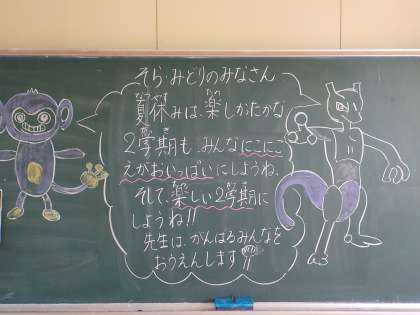 そら・みどりのみなさん
夏休みは、楽しかったかな
2学期も、みんなにこにこ
えがおいっぱいにしようね。
そして、楽しい2学期に
しようね!!
先生は、がんばるみんなを
おうえんします